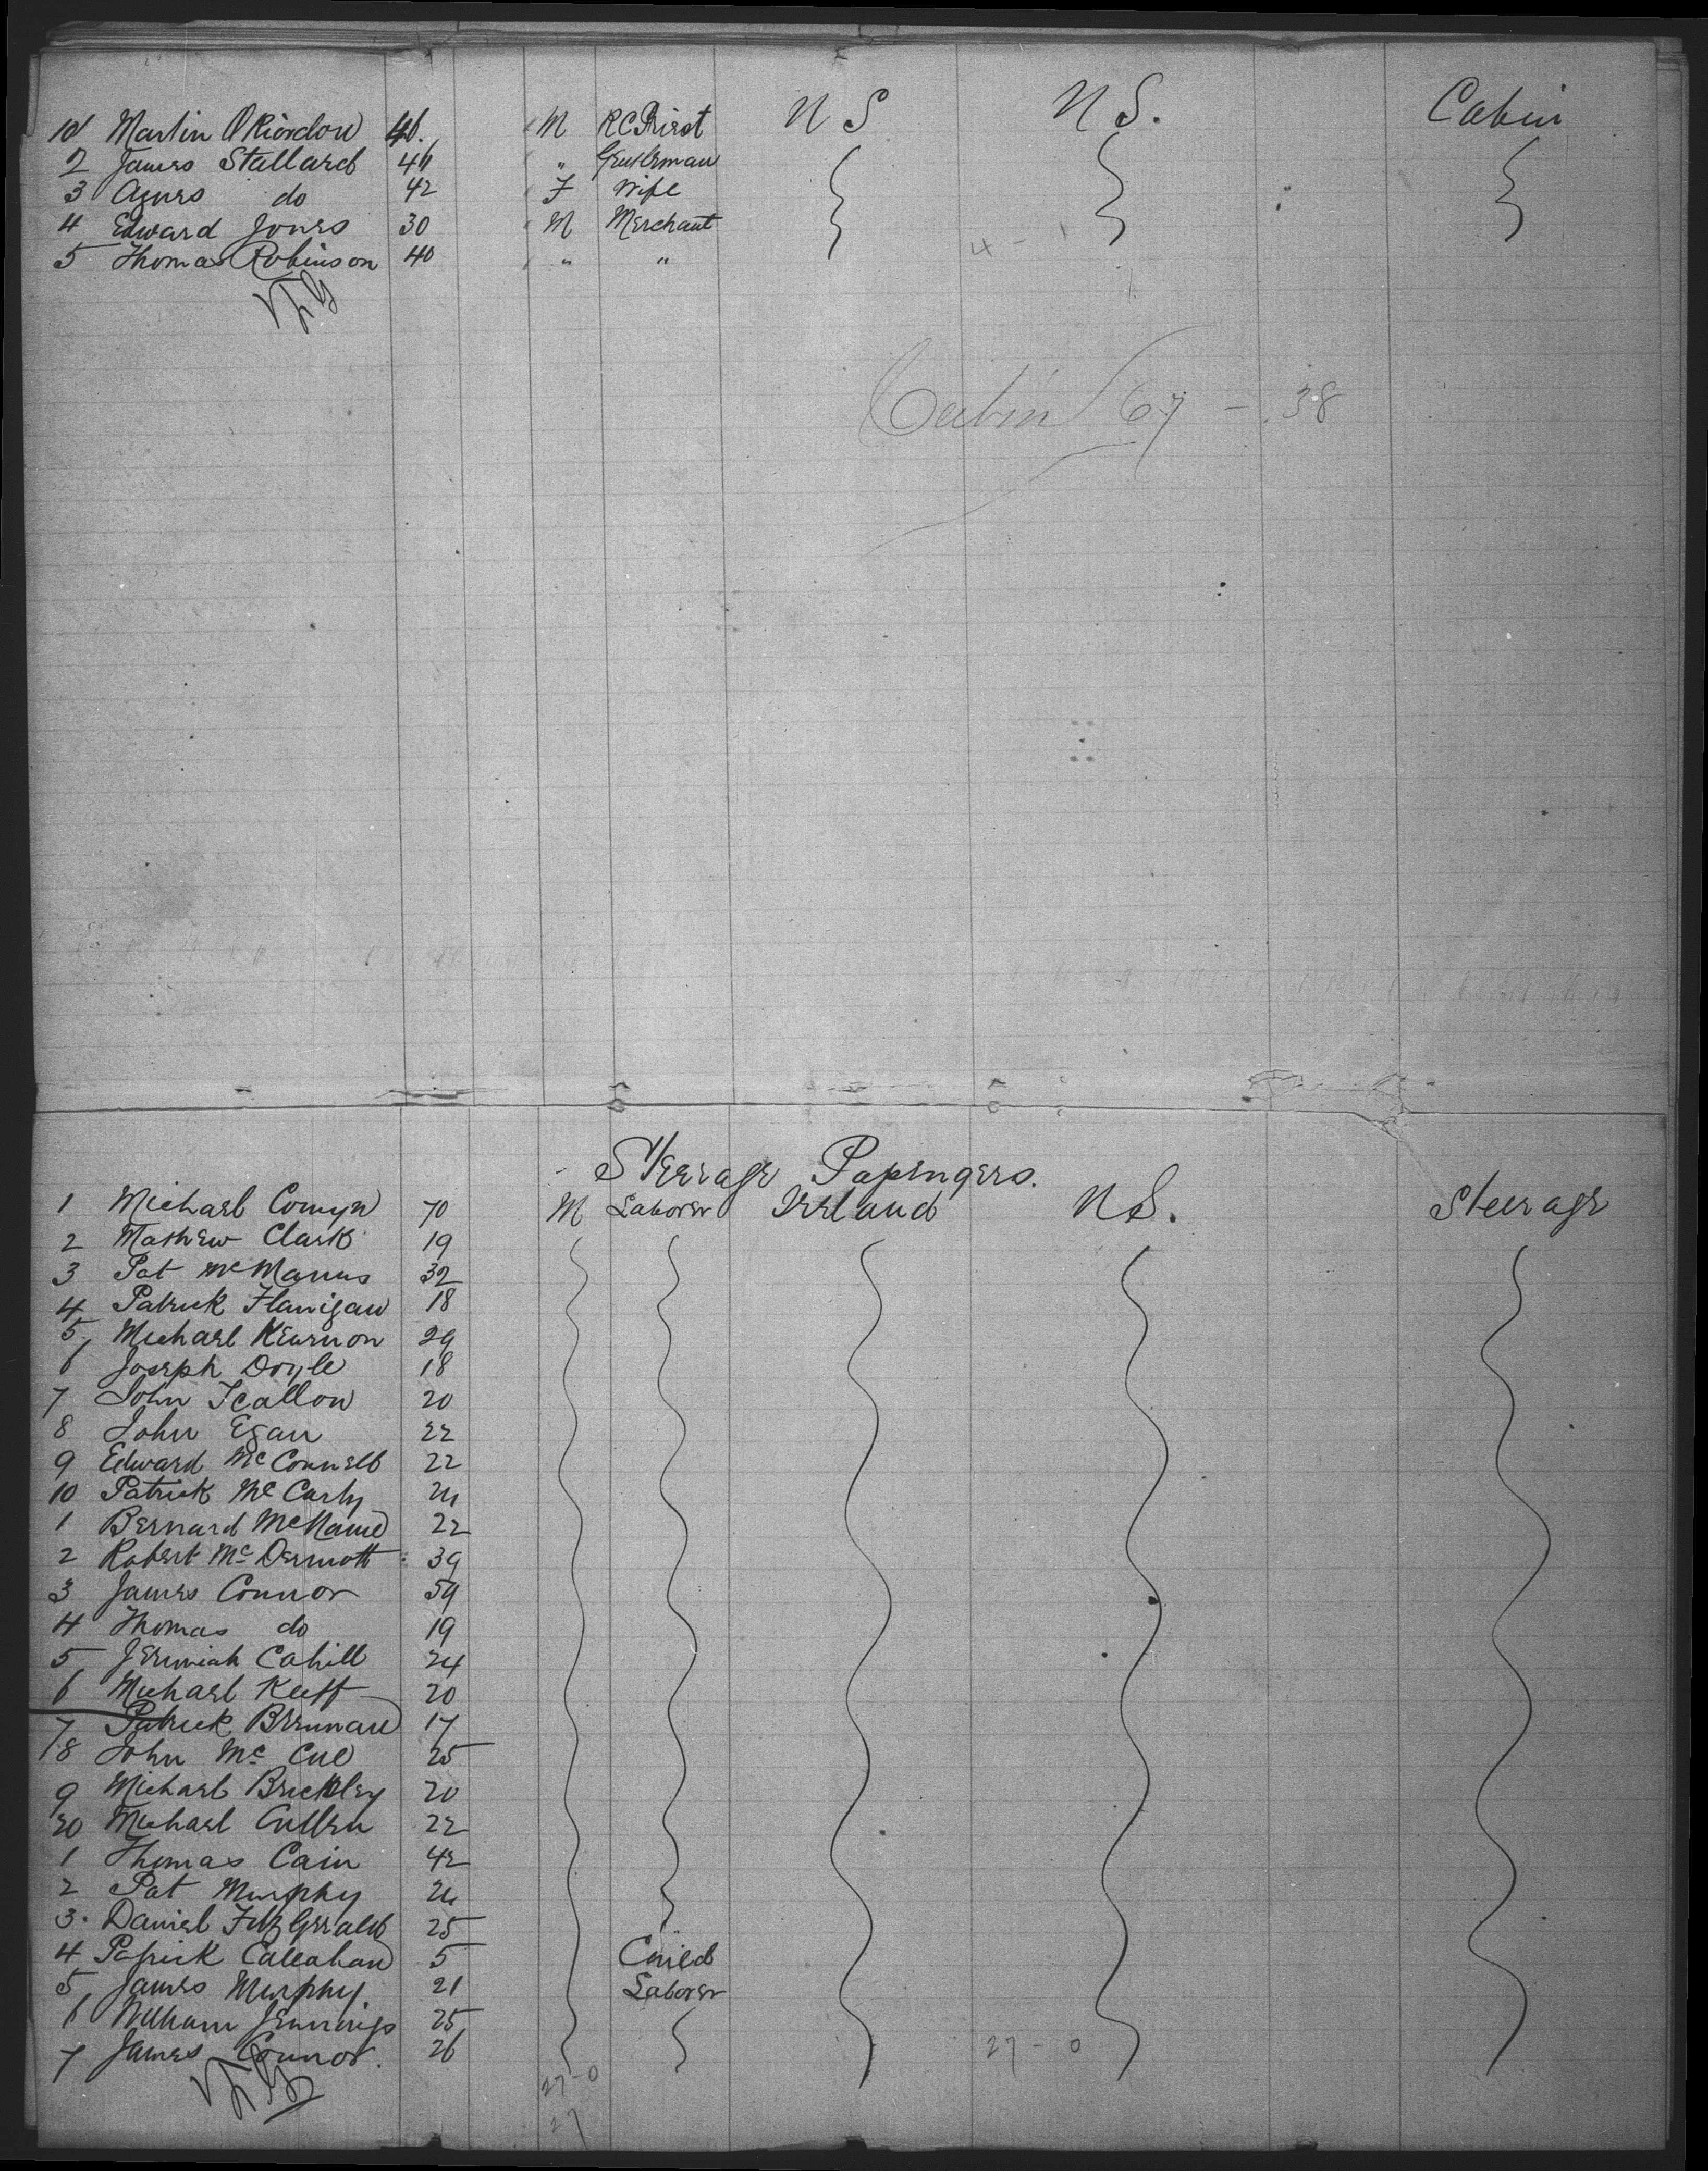 101 Martin O'Riordon 46. M RC Priest N S N S. Cabin
2 James Stallard 46 " Gentleman
3 Agnes do 42 F Wife
4 Edward Jones 30 M Merchant
5 Thomas Robinson 40 " "
4 - 1
Cabin 67 - 38
Steerage Passengers.
1 Michael Comyn 70 M Laborer Ireland N S. Steerage
2 Mathew Clark 19
3 Pat McManus 32
4 Patrick Flanigan 18
5 Michael Kiernon 29
6 Joseph Doyle 18
7 John Scallon 20
8 John Egan 22
9 Edward McConnell 22
10 Patrick McCarty 24
1 Bernard McName 22
2 Robert McDermott 39
3 James Connor 59
4 Thomas do 19
5 Jeremiah Cahill 24
6 Michael Keeff 20
7 Patrick Brennan 17
18 John McCue 25
9 Michael Brickley 20
20 Michael Cullen 22
1 Thomas Cain 42
2 Pat Murphy 24
3. Daniel FitzGerald 25
4 Patrick Callahan 5 Child
5 James Murphy 21 Laborer
6 William Jennings 25
7 James Connor. 26 27 - 0
27-0
27